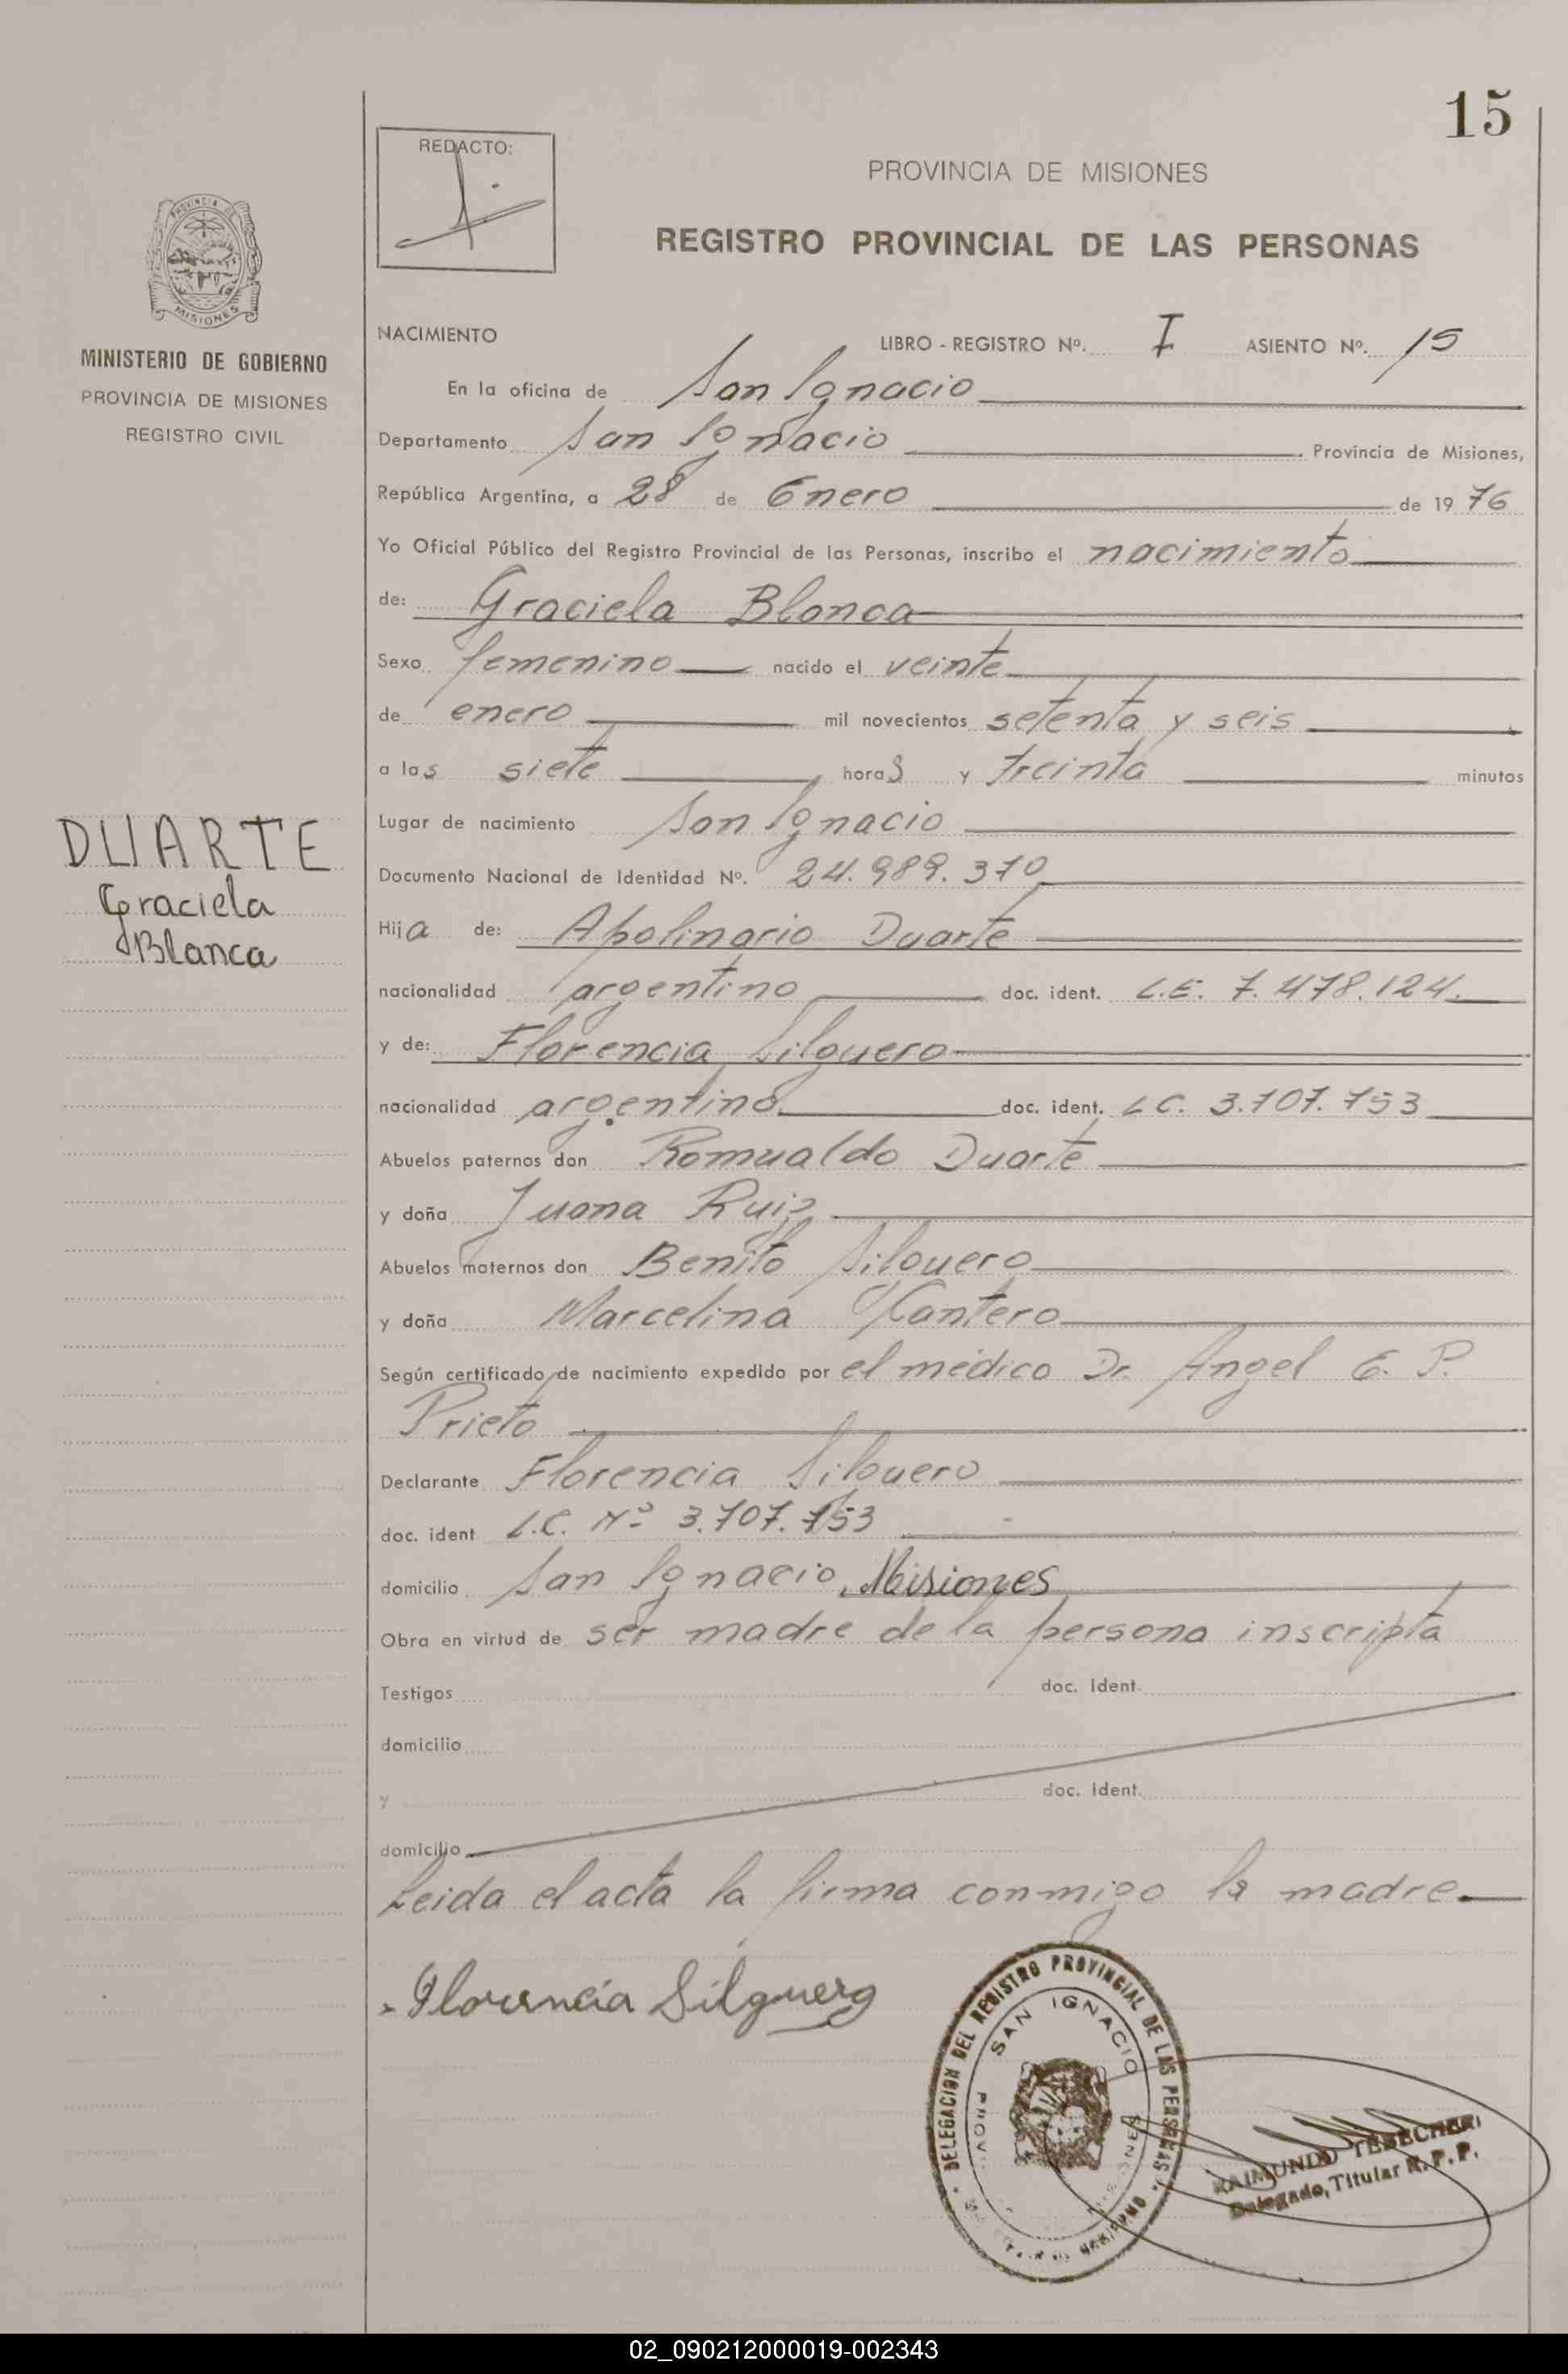 15
REDACTO:
PROVINCIA DE MISIONES
REGISTRO PROVINCIAL DE LAS PERSONAS
PROVINCIA DE
MISIONES
MINISTERIO DE GOBIERNO
PROVINCIA DE MISIONES
REGISTRO CIVIL
DUARTE
Graciela
Blanca
NACIMIENTO LIBRO - REGISTRO Nº. I ASIENTO Nº. 15
En la oficina de San Ignacio
Departamento San Ignacio Provincia de Misiones,
República Argentina, a 28 de Enero de 1976
Yo Oficial Público del Registro Provincial de las Personas, inscribo el nacimiento
de: Graciela Blanca
Sexo femenino nacido el veinte
de enero mil novecientos setenta y seis
a las siete horas y treinta minutos
Lugar de nacimiento San Ignacio
Documento Nacional de Identidad Nº. 24.989.370
Hija de: Apolinario Duarte
nacionalidad argentino doc. ident. L.E. 7.478.124.
y de: Florencia Silguero
nacionalidad argentina doc. ident. L.C. 3.707.753
Abuelos paternos don Romualdo Duarte
y doña Juana Ruiz
Abuelos maternos don Benito Silguero
y doña Marcelina Cantero
Según certificado de nacimiento expedido por el médico Dr. Angel E. P.
Prieto
Declarante Florencia Silguero
doc. ident L.C. Nº 3.707.753
domicilio San Ignacio, Misiones
Obra en virtud de ser madre de la persona inscripta
Testigos doc. ident.
domicilio
y doc. ident.
domicilio
Leida el acta la firma conmigo la madre.
Florencia Silguero
DELEGACION DEL REGISTRO PROVINCIAL DE LAS PERSONAS
SAN IGNACIO
PROV.
RAIMUNDO TERECHERI
Delegado, Titular R.P.P.
02_090212000019-002343